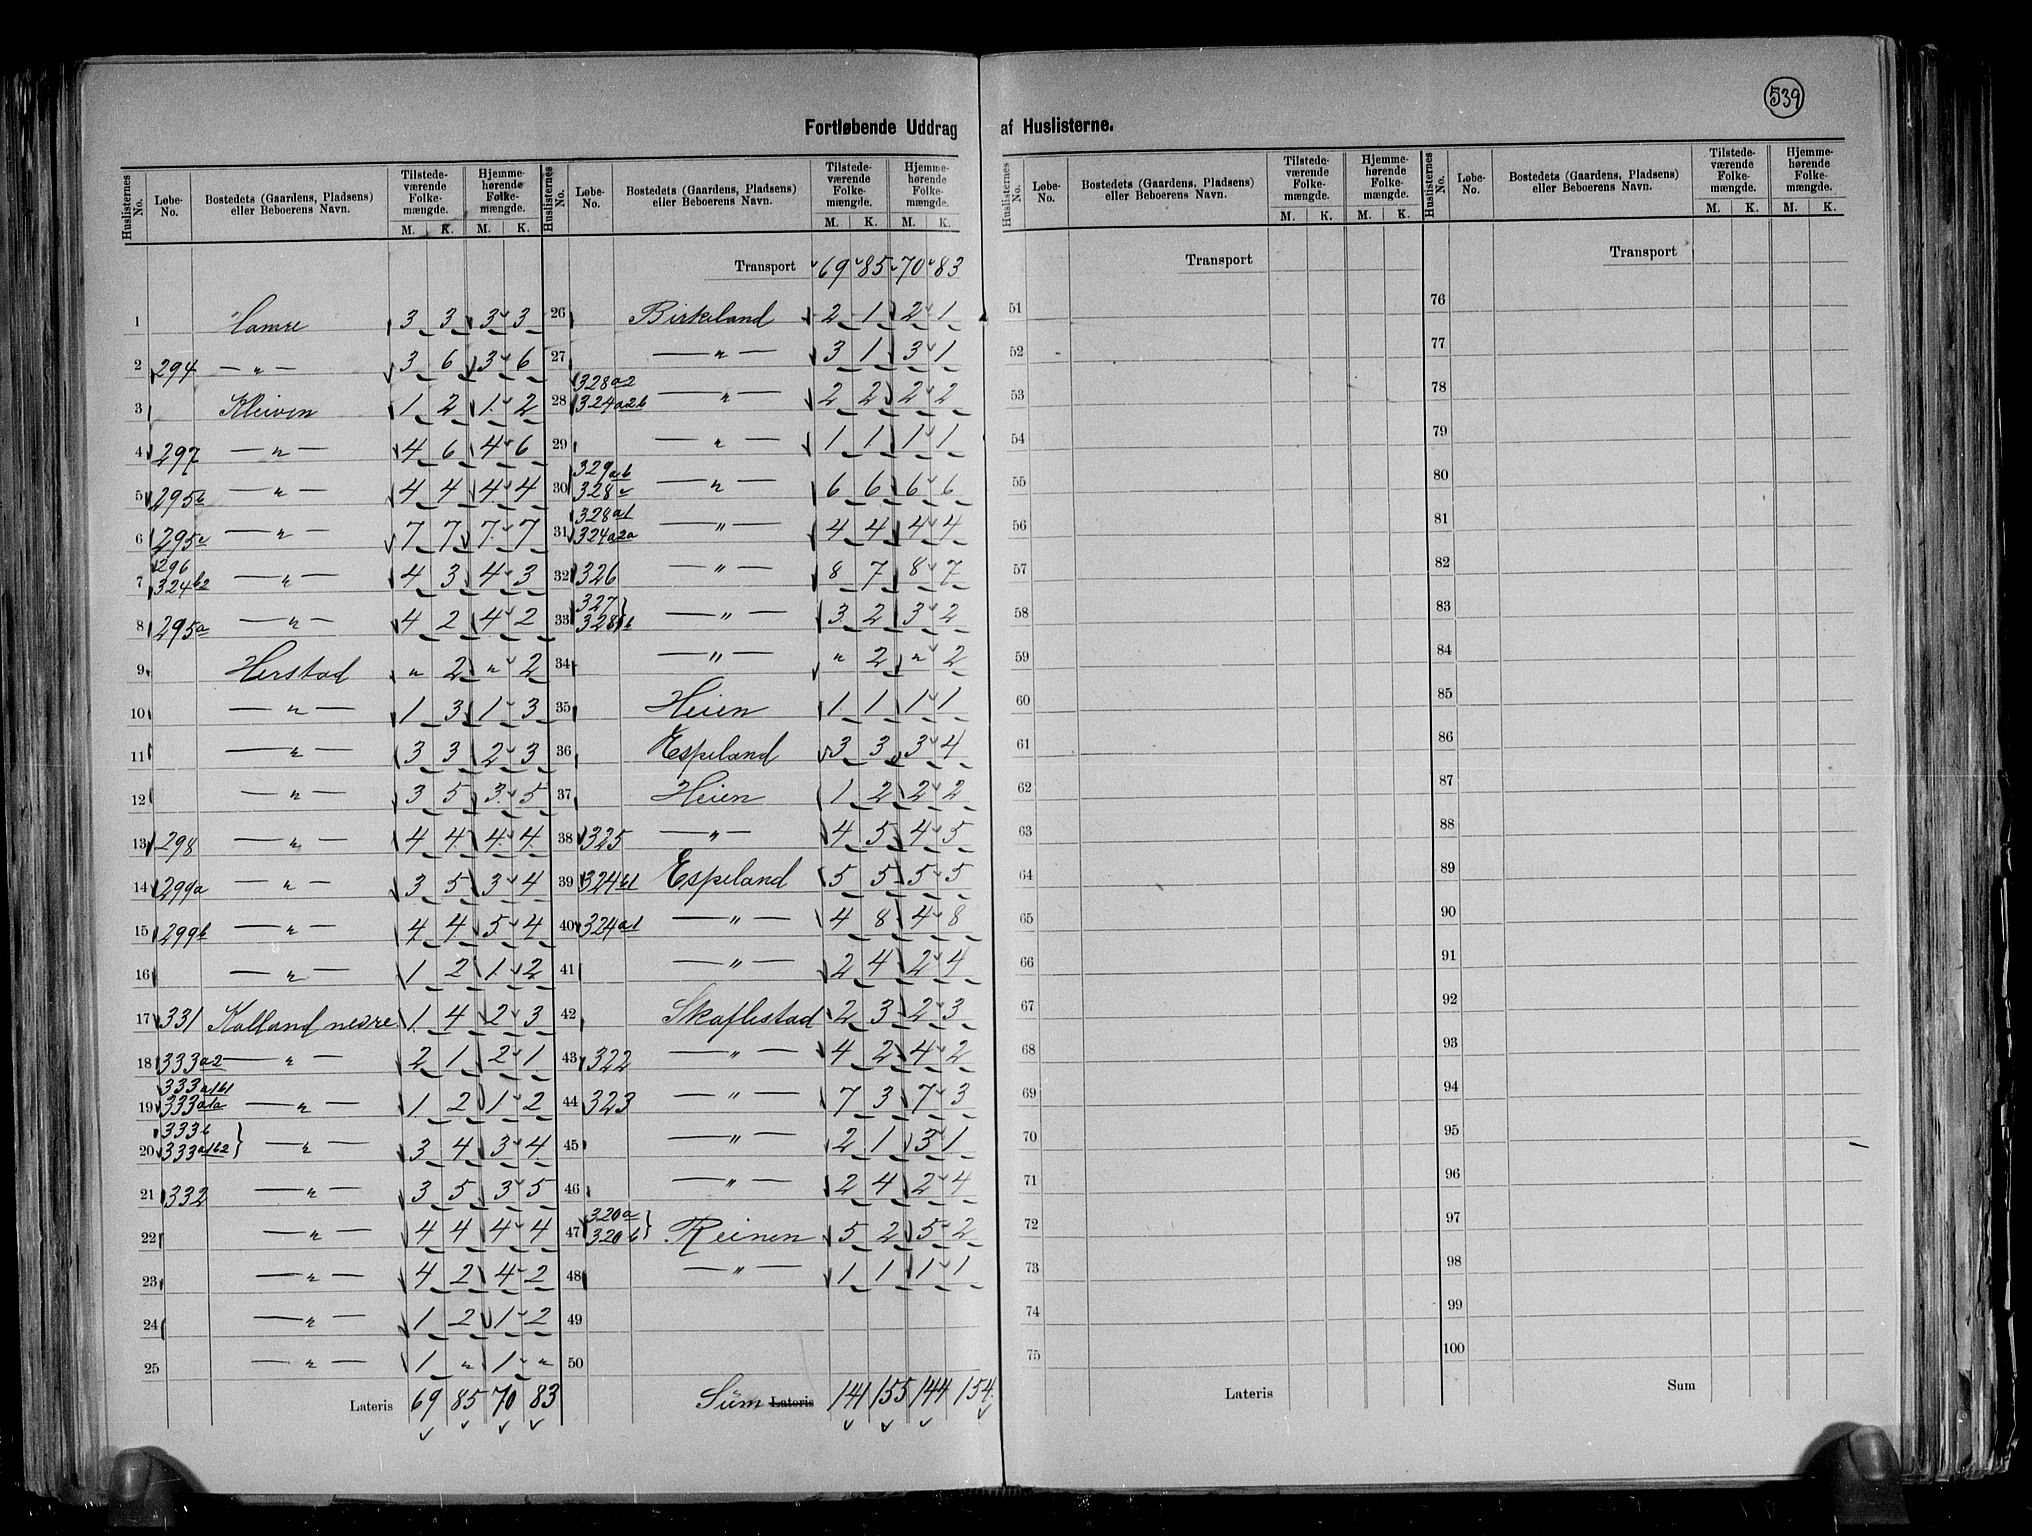 539
Fortløbende Uddrag af Huslisterne.
Huslisternes No. Løbe-No. Bostedets (Gaardens, Pladsens) eller Beboerens Navn. Tilstedeværende Folkemængde. M. K. Hjemmehørende Folkemængde. M. K.
1 Hamre 3 3 3 3
2 294 — " — 3 6 3 6
3 Kleiven 1 2 1 2
4 297 — " — 4 6 4 6
5 295b — " — 4 4 4 4
6 295c — " — 7 7 7 7
7 296 324b2 — " — 4 3 4 3
8 295a — " — 4 2 4 2
9 Herstad " 2 " 2
10 — " — 1 3 1 3
11 — " — 3 3 2 3
12 — " — 3 5 3 5
13 298 — " — 4 4 4 4
14 299a — " — 3 5 3 4
15 299b — " — 4 4 5 4
16 — " — 1 2 1 2
17 331 Kalland nedre 1 4 2 3
18 333a2 — " — 2 1 2 1
19 333a1b1 333a1a — " — 1 2 1 2
20 333b 333a1b2 } — " — 3 4 3 4
21 332 — " — 3 5 3 5
22 — " — 4 4 4 4
23 — " — 4 2 4 2
24 — " — 1 2 1 2
25 — " — 1 " 1 "
Lateris 69 85 70 83
Huslisternes No. Løbe-No. Bostedets (Gaardens, Pladsens) eller Beboerens Navn. Tilstedeværende Folkemængde. M. K. Hjemmehørende Folkemængde. M. K.
Transport 69 85 70 83
26 Birkeland 2 1 2 1
27 — " — 3 1 3 1
28 328a2 324a2b — " — 2 2 2 2
29 — " — 1 1 1 1
30 329ab 328c — " — 6 6 6 6
31 328a1 324a2a — " — 4 4 4 4
32 326 — " — 8 7 8 7
33 327 328b } — " — 3 2 3 2
34 — " — " 2 " 2
35 Heien 1 1 1 1
36 Espeland 3 3 3 4
37 Heien 1 2 2 2
38 325 — " — 4 5 4 5
39 324b1 Espeland 5 5 5 5
40 324a1 — " — 4 8 4 8
41 — " — 2 4 2 4
42 Skaflestad 2 3 2 3
43 322 — " — 4 2 4 2
44 323 — " — 7 3 7 3
45 — " — 2 1 3 1
46 — " — 2 4 2 4
47 320a 320b } Reinen 5 2 5 2
48 — " — 1 1 1 1
49
50
Sum Lateris 141 155 144 154
Huslisternes No. Løbe-No. Bostedets (Gaardens, Pladsens) eller Beboerens Navn. Tilstedeværende Folkemængde. M. K. Hjemmehørende Folkemængde. M. K.
Transport
51
52
53
54
55
56
57
58
59
60
61
62
63
64
65
66
67
68
69
70
71
72
73
74
75
Lateris
Huslisternes No. Løbe-No. Bostedets (Gaardens, Pladsens) eller Beboerens Navn. Tilstedeværende Folkemængde. M. K. Hjemmehørende Folkemængde. M. K.
Transport
76
77
78
79
80
81
82
83
84
85
86
87
88
89
90
91
92
93
94
95
96
97
98
99
100
Sum